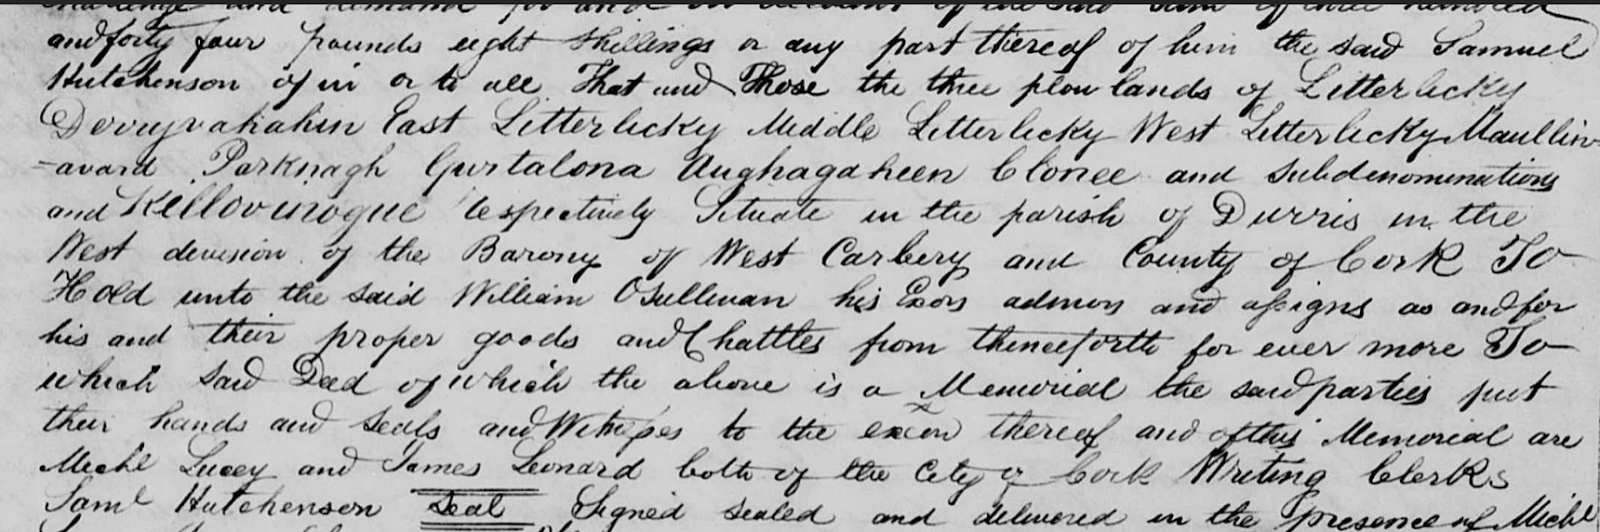 challenge and demand for and on account of the said sum of three hundred
and forty four pounds eight shillings or any part thereof of him the said Samuel
Hutchenson of in or to all That and Those the three plow lands of Letterlicky
Derryvahahin East Letterlicky Middle Letterlicky West Letterlicky Maullin
-avard Parknagh Gurtalona Aughagaheen Clonee and subdenominations
and Killovinogue respectively Situate in the parish of Durris in the
West devision of the Barony of West Carbery and County of Cork To
Hold unto the said William OSullivan his Exors admons and assigns as and for
his and their proper goods and Chattles from thenceforth for ever more To
which said Deed of which the above is a Memorial the said parties put
their hands and seals and Witnesses to the exeon thereof and of this Memorial are
Michl Lucey and James Leonard both of the City of Cork Writing Clerks
Saml Hutchenson Seal Signed sealed and delivered in the presence of Michl